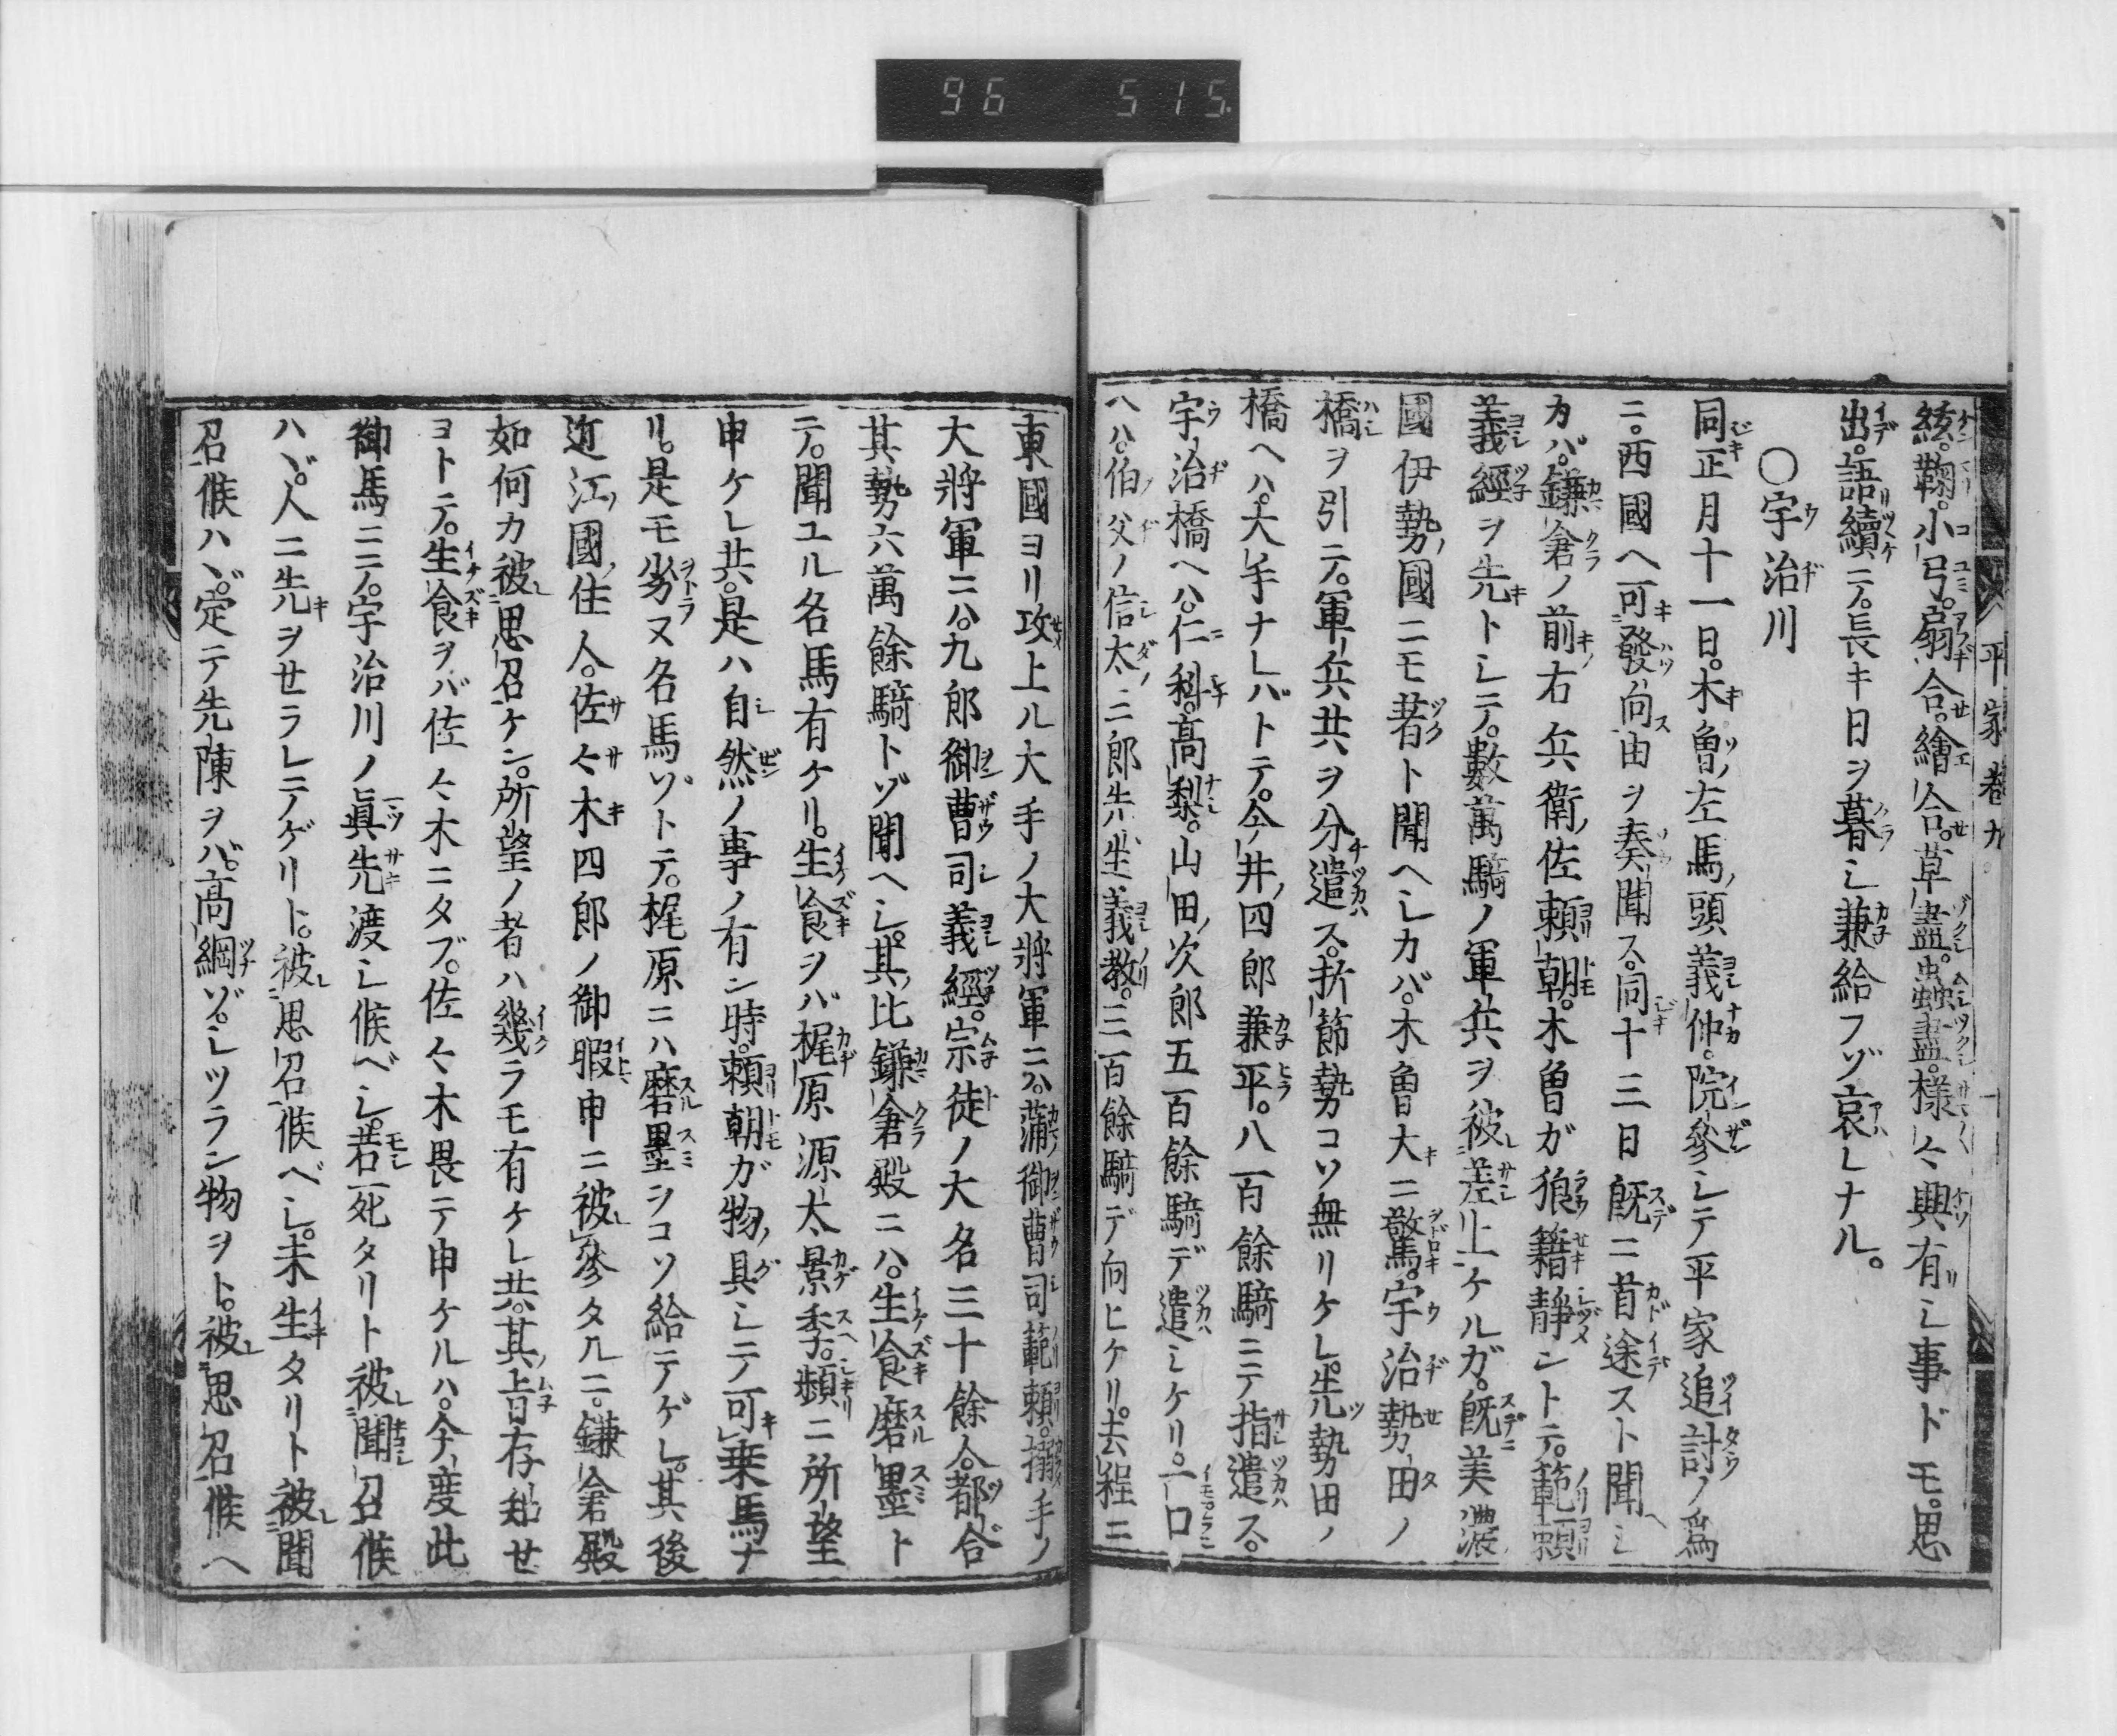 96 515
平家巻九 十一
絃。鞠。小弓。扇合。繪合。草盡。蟲盡。様々興有シ事ドモ。思
出。語續ニテ。長キ日ヲ暮シ兼給フゾ哀レナル。
○宇治川
同正月十一日。木曾左馬頭義仲。院參シテ平家追討ノ爲
ニ。西國ヘ可發向由ヲ奏聞ス。同十三日既ニ首途スト聞ヘシ
カバ。鎌倉ノ前右兵衛佐頼朝。木曾ガ狼籍靜ントテ。範頼
義經ヲ先トシテ。數萬騎ノ軍兵ヲ被差上ケルガ。既美濃
國伊勢國ニモ著ト聞ヘシカバ。木曾大ニ驚。宇治勢田ノ
橋ヲ引テ。軍兵共ヲ分遣ス。折節勢コソ無リケレ。先勢田ノ
橋ヘハ。大手ナレバトテ。今井四郎兼平。八百餘騎ニテ指遣ス。
宇治橋ヘハ。仁科。髙梨。山田次郎五百餘騎デ遣シケリ。一口
ヘハ。伯父ノ信太三郎先生義教。三百餘騎デ向ヒケリ。去程ニ
東國ヨリ攻上ル大手ノ大將軍ニハ。蒲御曹司範頼。搦手ノ
大將軍ニハ。九郎御曹司義經。宗徒ノ大名三十餘人。都合
其勢六萬餘騎トゾ聞ヘシ。其比鎌倉殿ニハ。生食磨墨ト
テ。聞ユル名馬有ケリ。生食ヲバ梶原源太景季。頻ニ所望
申ケレ共。是ハ自然ノ事ノ有ン時。頼朝ガ物具シテ可乗馬ナ
リ。是モ劣ヌ名馬ゾトテ。梶原ニハ磨墨ヲコソ給テゲレ。其後
近江國住人。佐々木四郎ノ御暇申ニ被參タルニ。鎌倉殿
如何カ被思召ケン。所望ノ者ハ幾ラモ有ケレ共。其旨存知せ
ヨトテ。生食ヲバ佐々木ニタブ。佐々木畏テ申ケルハ。今度此
御馬ニテ。宇治川ノ眞先渡シ候ベシ。若死タリト被聞召候
ハヾ。人ニ先ヲせラレテゲリト。被思召候ベシ。未生タリト被聞
召候ハヾ。定テ先陳ヲバ。高綱ゾ。シツラン物ヲト。被思召候ヘ